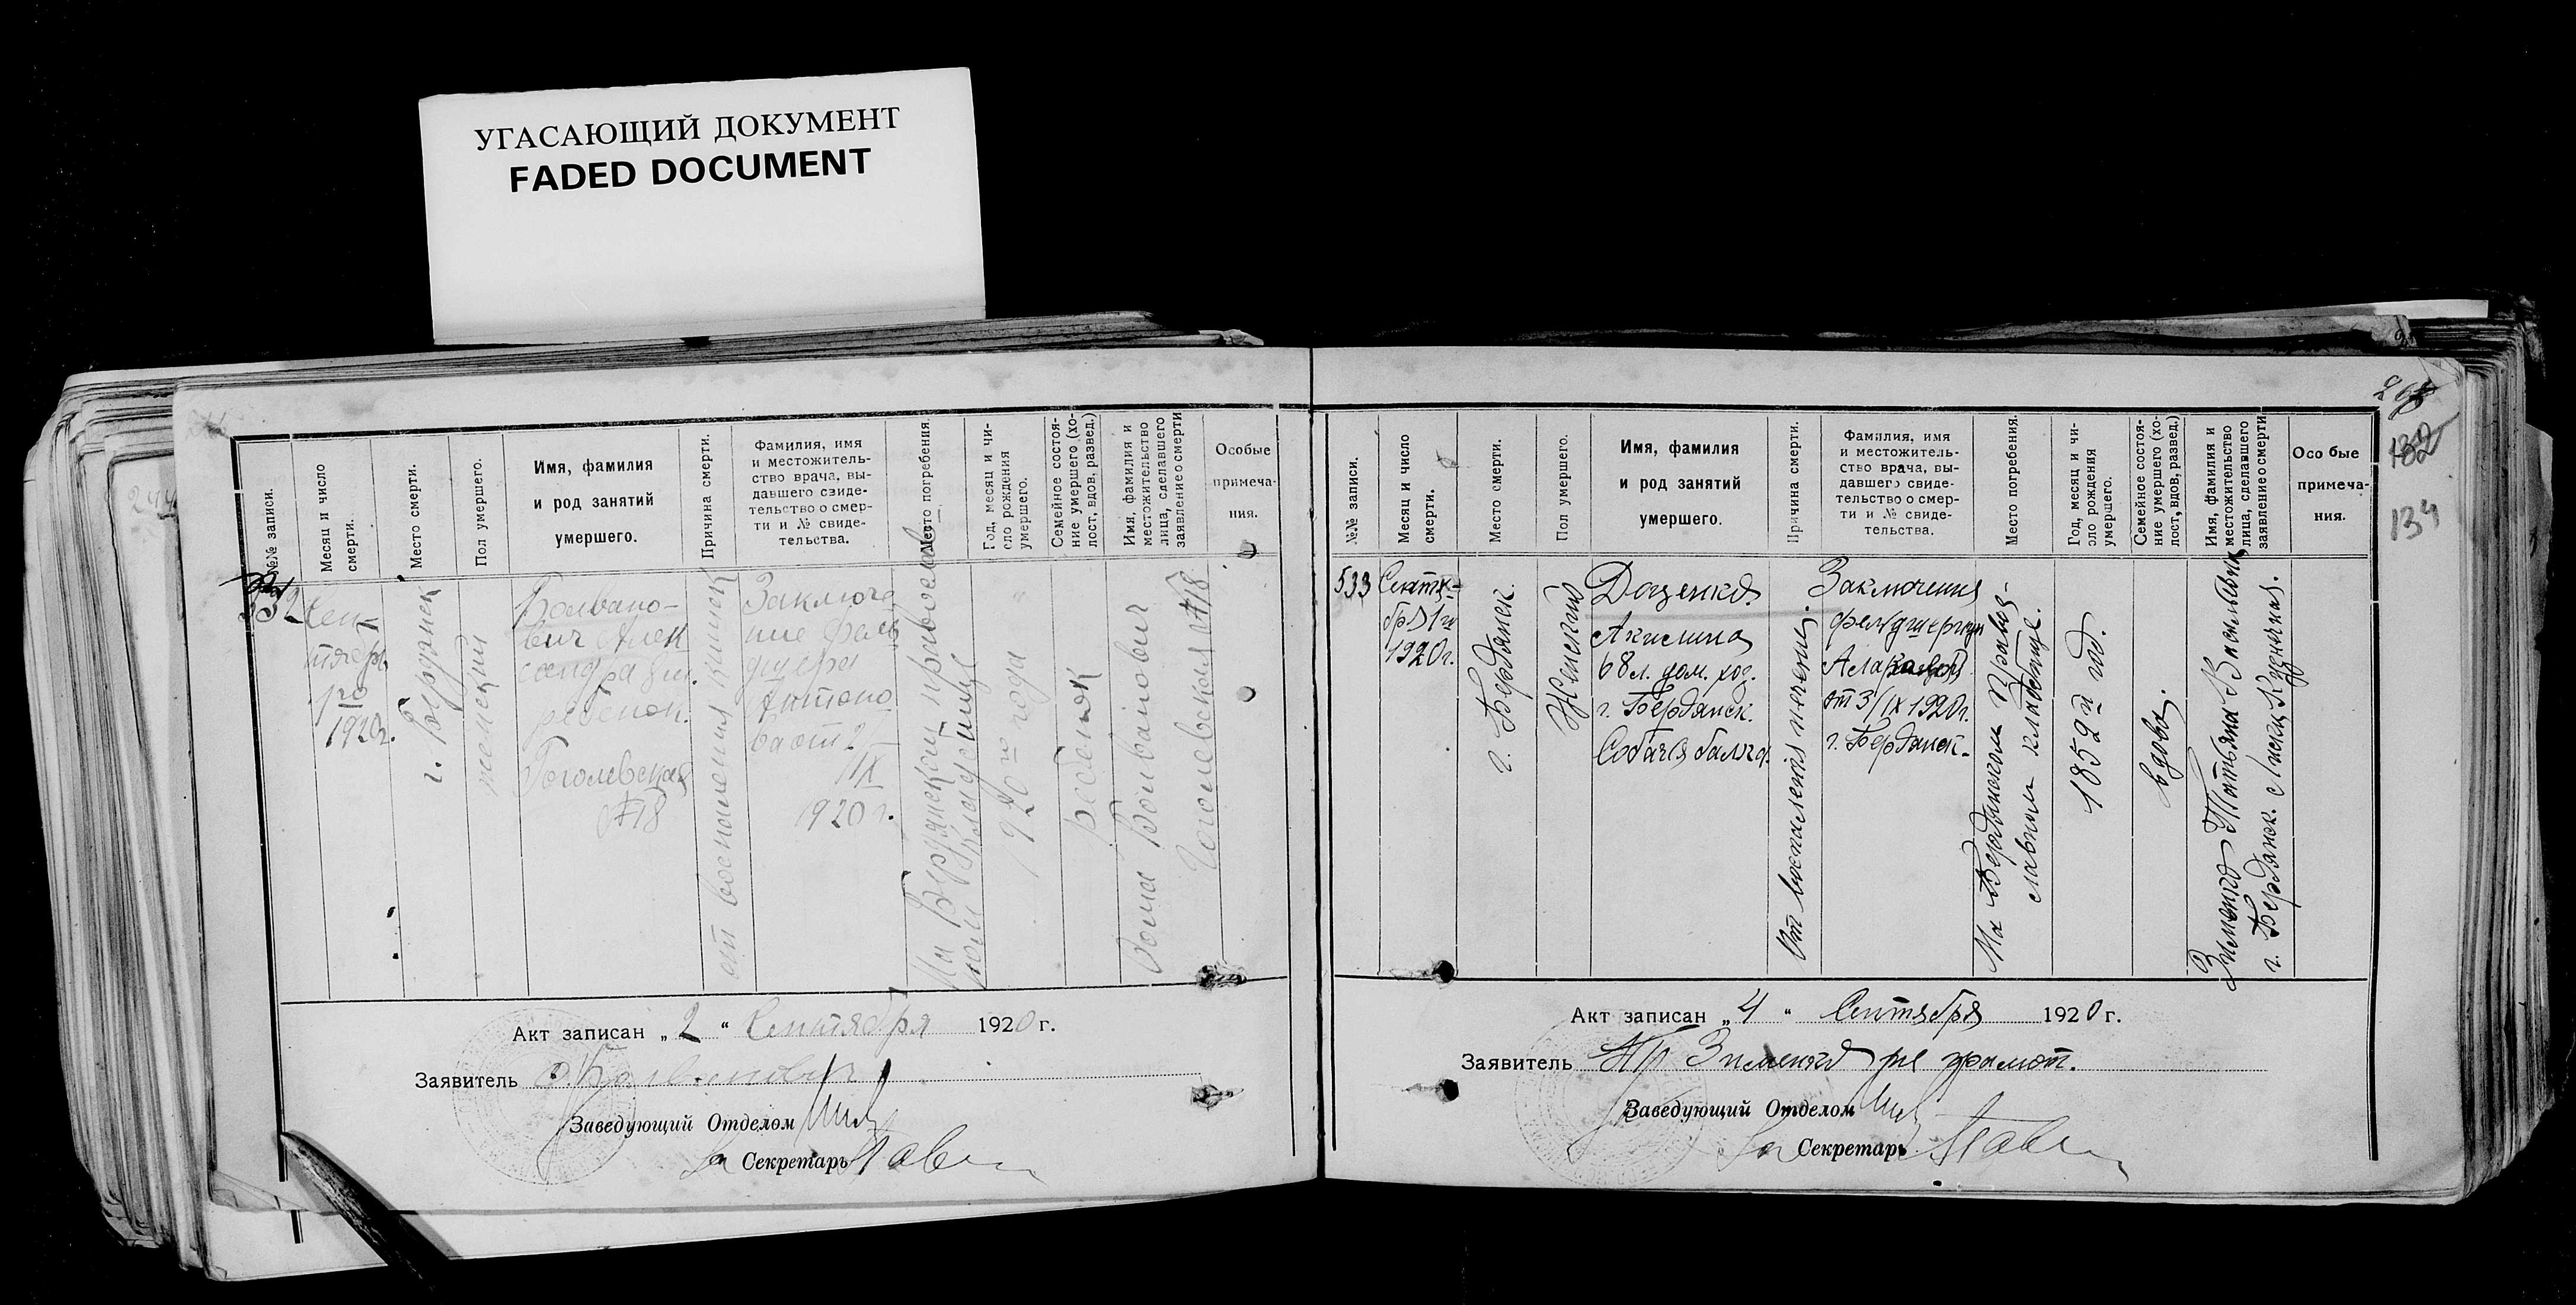 УГАСАЮЩИЙ ДОКУМЕНТ
FADED DOCUMENT
№№ записи.
Месяц и число смерти.
Место смерти.
Пол умершего.
Имя, фамилия
и род занятий
умершего.
Причина смерти.
Фамилия, имя
и местожитель-
ство врача, вы-
давшего свиде-
тельство о смер-
ти и № свиде-
тельства.
Место погребения.
Год, месяц и чи-
сло рождения
умершего.
Семейное состоя-
ние умершего (хо-
лост, вдов, развед.)
Имя, фамилия и
местожительство
лица, сделавшего
заявление о смерти
Особые
примеча-
ния.
532
Сен
тября
1го
1920г.
г. Бердянск
женский
Болвано-
вич Алек
сандра
ребенок.
Гоголевская
№18
от воспаления кишек
Заключе
ние фель
дшера
Антоно
ва от 2/
IX
1920 г.
На Бердянском православ
ном кладбище
1920го года
ребенок
Фома Болванович
Гоголевская №18
Акт записан „2“ Сентября 1920 г.
Заявитель Ф. Болванович
Заведующий Отделом
За Секретарь
№№ записи.
Месяц и число
смерти.
Место смерти.
Пол умершего.
Имя, фамилия
и род занятий
умершего.
Причина смерти.
Фамилия, имя
и местожитель-
ство врача, вы-
давшего свиде-
тельство о смер-
ти и № свиде-
тельства.
Место погребения.
Год, месяц и чи-
сло рождения
умершего.
Семейное состоя-
ние умершего (хо-
лост, вдов, развед.)
Имя, фамилия и
местожительство
лица, сделавшего
заявление о смерти
Особые
примеча-
ния.
132
134
533
Сентя-
бря 1го
1920г.
г. Бердянск.
Женский
Доценко
Акилина
68 л. дом. хоз.
г. Бердянск.
Собачья балка.
От воспаления печени.
Заключения
фельдшерицы
от 3/IX 1920г.
г. Бердянск.
На Бердянском Право-
славном кладбище.
1852й год.
вдова.
Зименко Татьяна Васильевна
г. Бердянск.
Акт записан „4“ Сентября 1920 г.
Заявитель Зименко не грамот.
Заведующий Отделом
За Секретарь